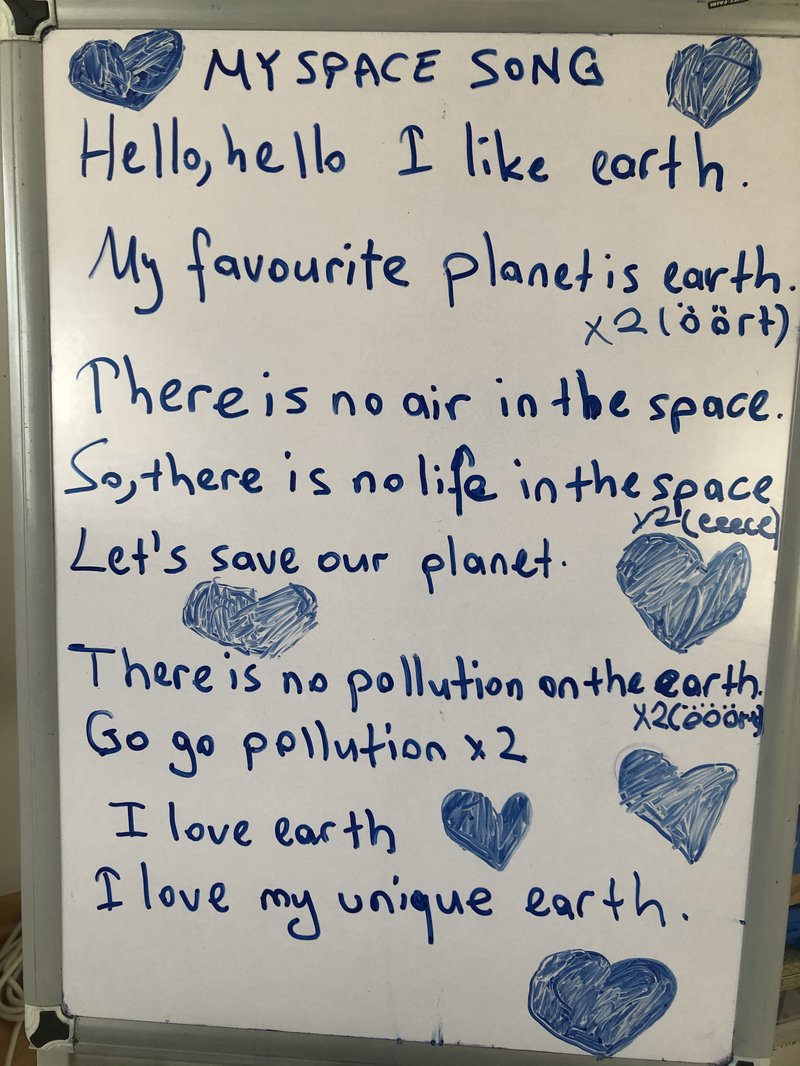 MY SPACE SONG
Hello, hello I like earth.
My favourite planet is earth.
x2 (öört)
There is no air in the space.
So, there is no life in the space
x2 (eeeee)
Let's save our planet.
There is no pollution on the earth.
x2 (öööört)
Go go pollution x2
I love earth
I love my unique earth.